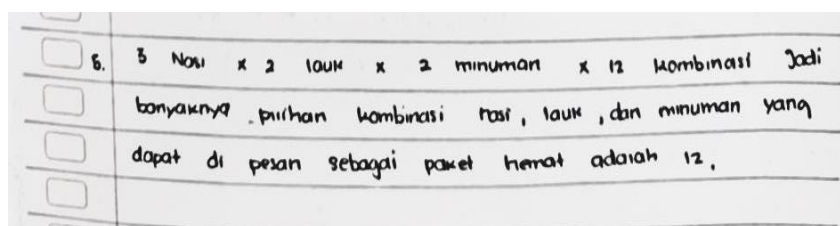 5. 3 Nasi x 2 lauk x 2 minuman x 12 kombinasi Jadi
banyaknya pilihan kombinasi nasi, lauk, dan minuman yang
dapat di pesan sebagai paket hemat adalah 12.